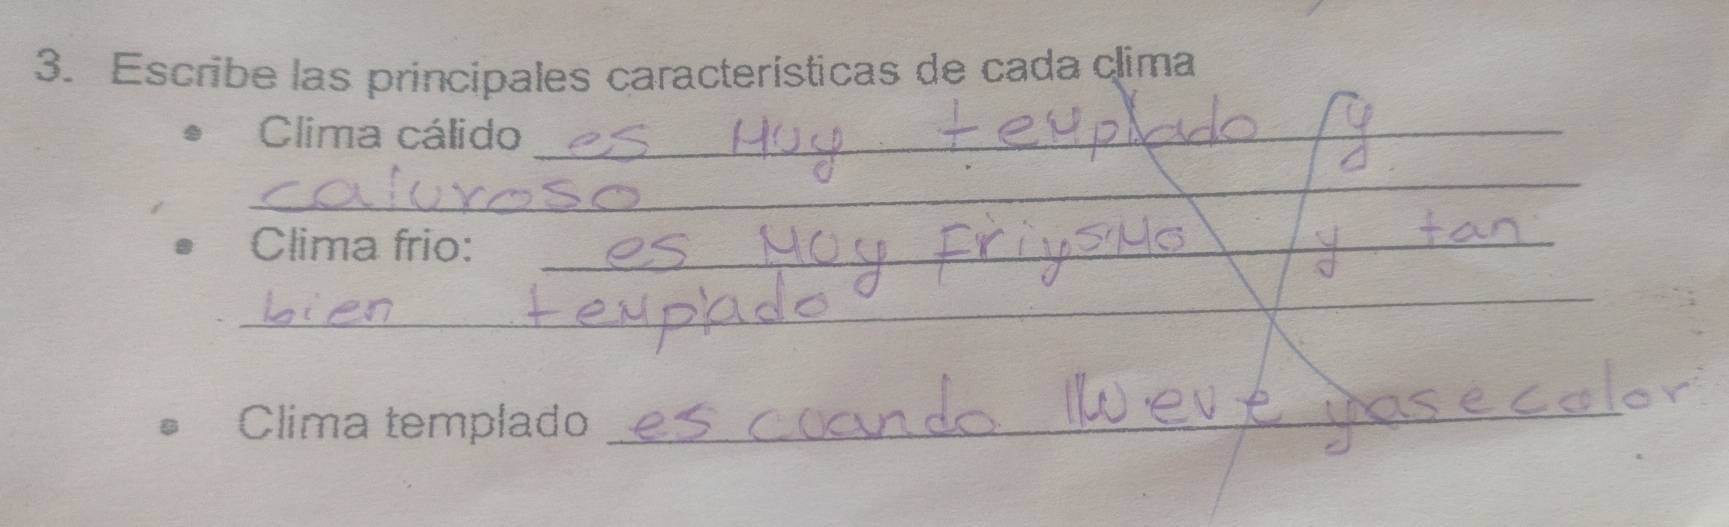 3. Escribe las principales características de cada clima
• Clima cálido es Muy templado y
caluroso
• Clima frio: es Muy Friysmo y tan
bien templado
• Clima templado es cuando llueve yasecolor